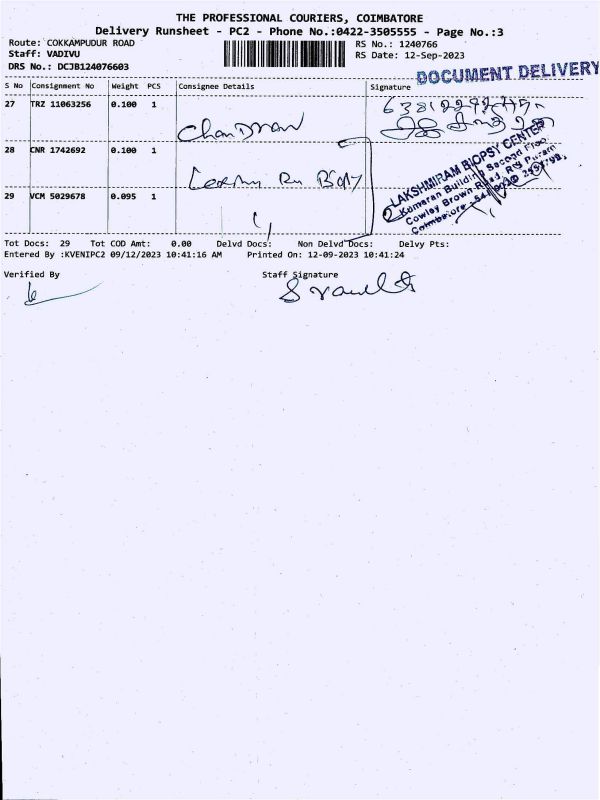 THE PROFESSIONAL COURIERS, COIMBATORE
Delivery Runsheet - PC2 - Phone No.:0422-3505555 - Page No.:3
Route: COKKAMPUDUR ROAD
Staff: VADIVU
DRS No.: DCJB124076603
RS No.: 1240766
RS Date: 12-Sep-2023
DOCUMENT DELIVERY
S No Consignment No Weight PCS Consignee Details Signature
27 TRZ 11063256 0.100 1
Chandran
28 CNR 1742692 0.100 1
29 VCM 5029678 0.095 1
LAKSHMIRAM BIOPSY CENTER
Kumaran Building Second Floor
Cowley Brown Road, R.S. Puram
Coimbatore
Tot Docs: 29 Tot COD Amt: 0.00 Delvd Docs: Non Delvd Docs: Delvy Pts:
Entered By :KVENIPC2 09/12/2023 10:41:16 AM Printed On: 12-09-2023 10:41:24
Verified By Staff Signature